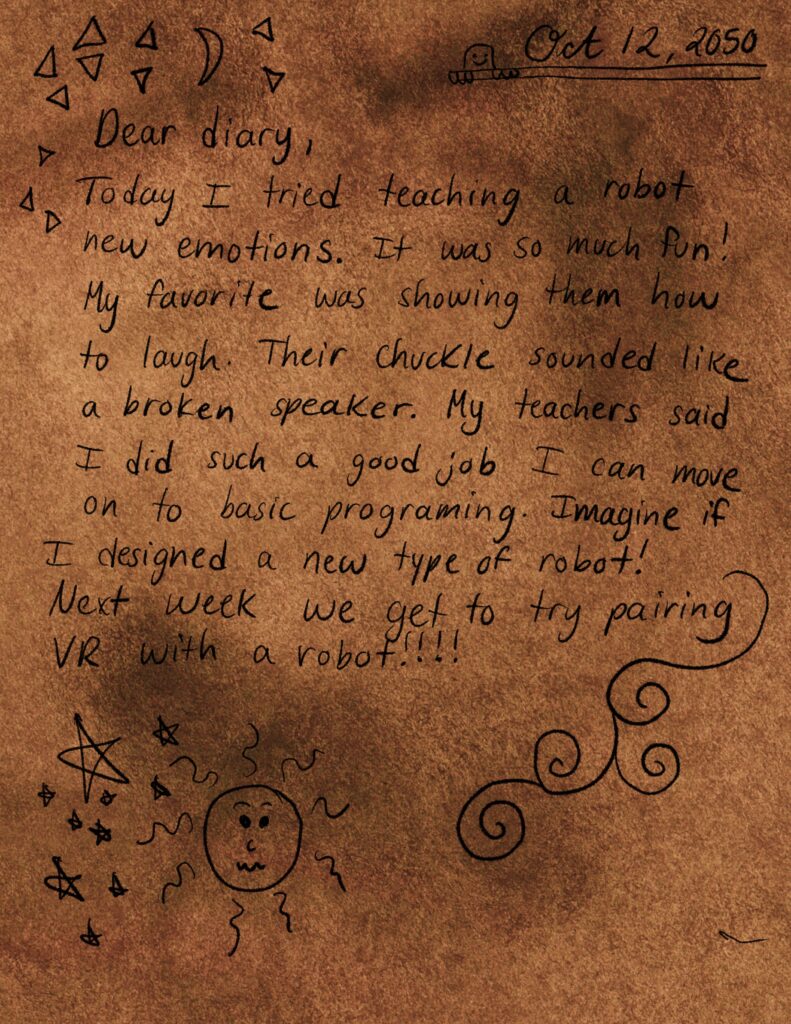 Oct 12, 2050
Dear diary,
Today I tried teaching a robot
new emotions. It was so much fun!
My favorite was showing them how
to laugh. Their chuckle sounded like
a broken speaker. My teachers said
I did such a good job I can move
on to basic programing. Imagine if
I designed a new type of robot!
Next week we get to try pairing
VR with a robot!!!!